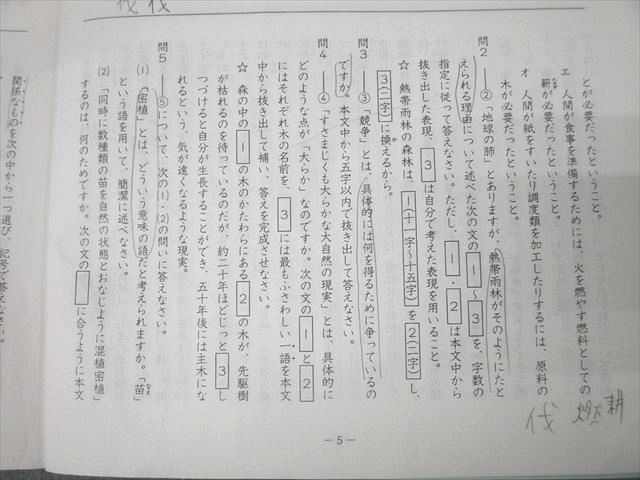 伐 伐
とが必要だったということ。
エ 人間が食事を準備するためには、火を燃やす燃料としての
薪が必要だったということ。
オ 人間が紙をすいたり調度類を加工したりするには、原料の
木が必要だったということ。
問2 ――②「地球の肺」とありますが、熱帯雨林がそのようにたと
えられる理由について述べた次の文の1〜3を、字数の
指定に従って答えなさい。ただし、1・2は本文中から
抜き出した表現、3は自分で考えた表現を用いること。
☆ 熱帯雨林の森林は、1(十一字〜十五字)を2(二字)し、
3(二字)に換えるから。
問3 ――③「競争」とは、具体的には何を得るために争っているの
ですか。本文中から五字以内で抜き出して答えなさい。
問4 ――④「すさまじくも大らかな大自然の現実」とは、具体的に
どのような点が「大らか」なのですか。次の文の1と2
にはそれぞれ木の名前を、3には最もふさわしい一語を本文
中から抜き出して補い、答えを完成させなさい。
☆ 森の中の1の木のかたわらにある2の木が、先駆樹
が枯れるのを待っているのだが、約二十年ほどじっと3し
つづけると自分が生長することができ、五十年後には主木にな
れるという、気が遠くなるような現実。
問5 ――⑤について、次の(1)・(2)の問いに答えなさい。
(1) 「密植」とは、どういう意味の語だと考えられますか。「苗」
という語を用いて、簡潔に述べなさい。
(2) 「同時に数種類の苗を自然の状態とおなじように混植密植」
するのは、何のためですか。次の文の　に合うように本文
関係なものを次の中から一つ選び、記号で答えなさい。
伐 燃 耕
―5―